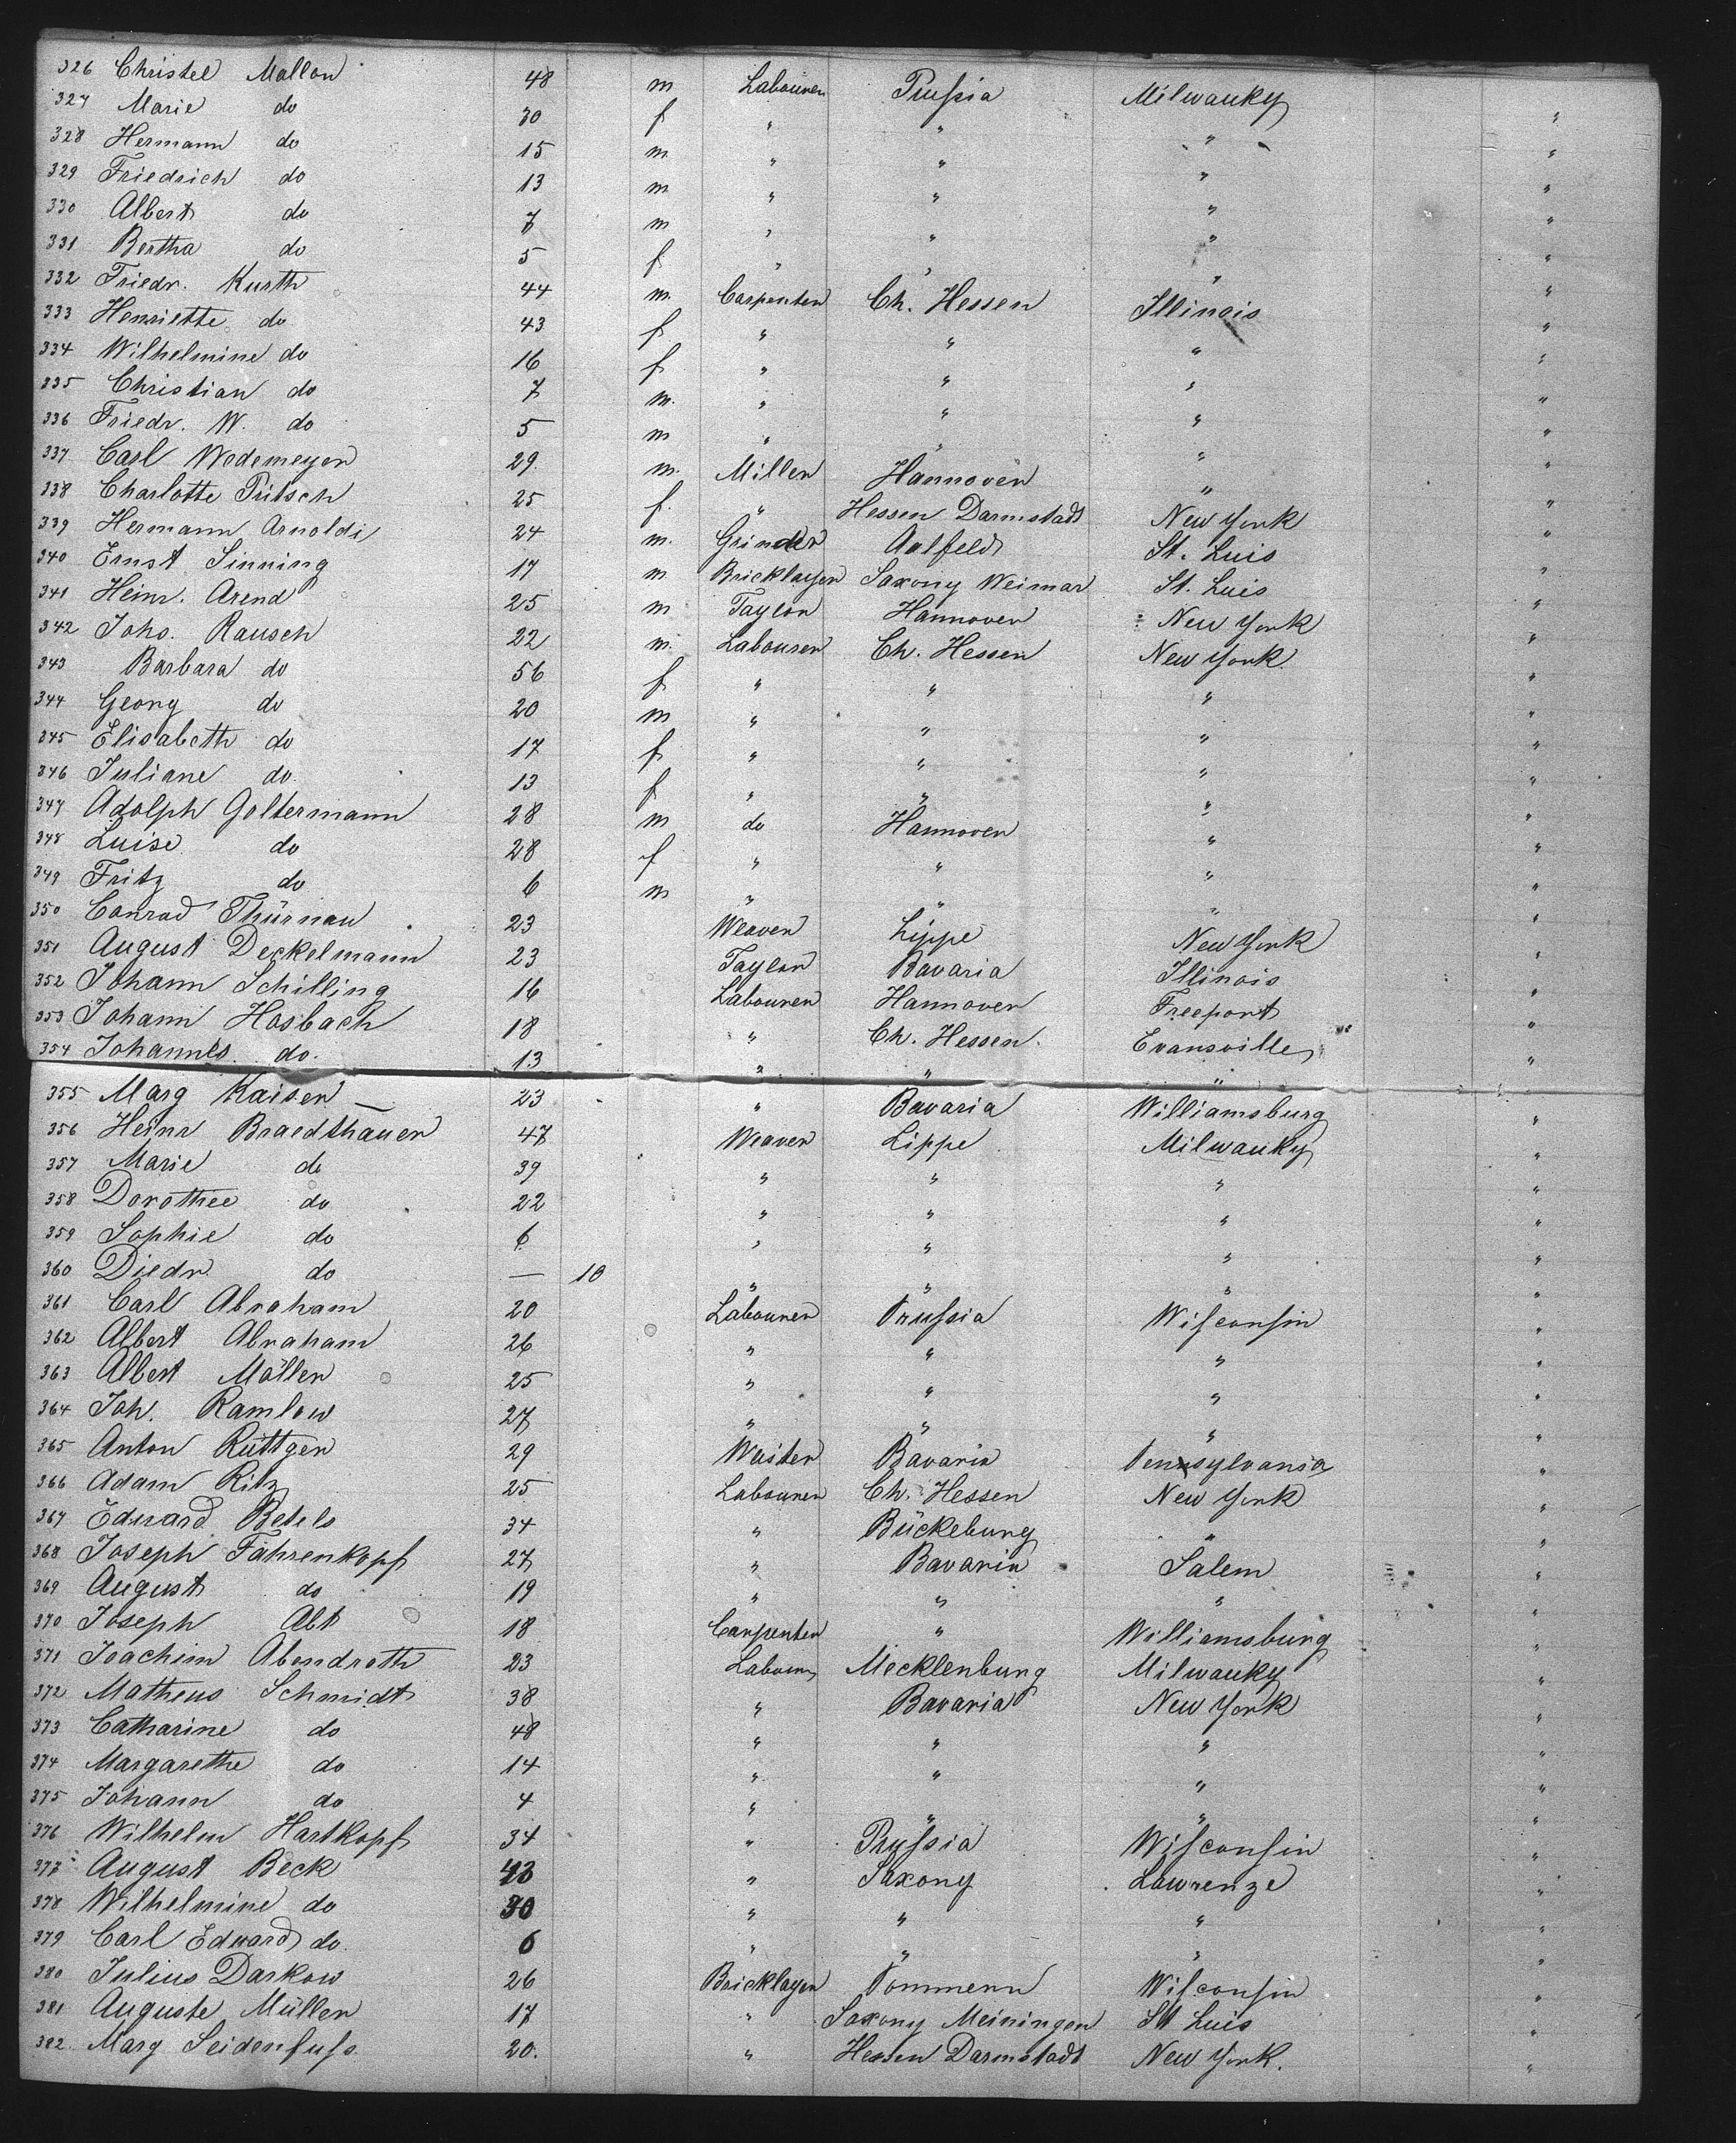 326 Christel Mallon 48 m Labourer Prussia Milwauky
327 Marie do 30 f " " " "
328 Hermann do 15 m " " " "
329 Friedrich do 13 m " " " "
330 Albert do 7 m " " " "
331 Bertha do 5 f " " " "
332 Friedr. Kurth 44 m. Carpenter Ch. Hessen Illinois "
333 Henriette do 43 f " " " "
334 Wilhelmine do 16 f " " " "
335 Christian do 7 m. " " " "
336 Friedr. W. do 5 m " " " "
337 Carl Wedemeyer 29. m. Miller Hannover " "
338 Charlotte Pritsch 25 f. " Hessen Darmstadt New York "
339 Hermann Arnoldi 24 m. Grinder Aalfeld St. Luis "
340 Ernst Sinning 17 m Bricklayer Saxony Weimar St. Luis "
341 Heinr. Arend 25 m Taylor Hannover New York "
342 Johs. Rausch 22 m. Labourer Ch. Hessen New York. "
343 Barbara do 56 f " " " "
344 Georg do 20 m " " " "
345 Elisabeth do 17 f " " " "
346 Juliane do. 13 f " " " "
347 Adolph Goltermann 28 m do Hannover " "
348 Luise do 28 f " " " "
349 Fritz do 6 m " " " "
350 Conrad Thürnau 23 Weaver Lippe New York "
351 August Deckelmann 23 Taylor Bavaria Illinois "
352 Johann Schilling 16 Labourer Hannover Freeport "
353 Johann Hosbach 18 " Ch. Hessen. Evansville "
354 Johannes do. 13 " " " "
355 Marg Kaiser 23 " Bavaria Williamsburg "
356 Heinr Braedthauer 47 Weaver Lippe Milwauky "
357 Marie do 39 " " " "
358 Dorothee do 22 " " " "
359 Sophie do 6 " " " "
360 Diedr. do — 10 " " " "
361 Carl Abraham 20 Labourer Prussia Wisconsin "
362 Albert Abraham 26 " " " "
363 Albert Möller 25 " " " "
364 Joh. Ramlow 27 " " " "
365 Anton Rüttger 29 Waiter Bavaria Pennsylvania "
366 Adam Ritz 25 Labourer Ch. Hessen New York "
367 Eduard Betels 34 " Bückeburg " "
368 Joseph Fahrenkopf 27 " Bavaria Salem "
369 August do 19 " " " "
370 Joseph Alt 18 Carpenter " Williamsburg "
371 Joachim Abendroth 23 Labour Mecklenburg Milwauky "
372 Matheus Schmidt 38 " Bavaria New York "
373 Catharine do 48 " " " "
374 Margarethe do 14 " " " "
375 Johann do 4 " " " "
376 Wilhelm Hartkopf 34 " Prussia Wisconsin "
377 August Beck 43 " Saxony Lawrenze "
378 Wilhelmine do 30 " " " "
379 Carl Eduard do. 6 " " " "
380 Julius Darkow 26 Bricklayer Pommern Wisconsin "
381 Auguste Müller 17 " Saxony Meiningen St Luis "
382 Marg Seidenfuss 20. " Hessen Darmstadt New York. "